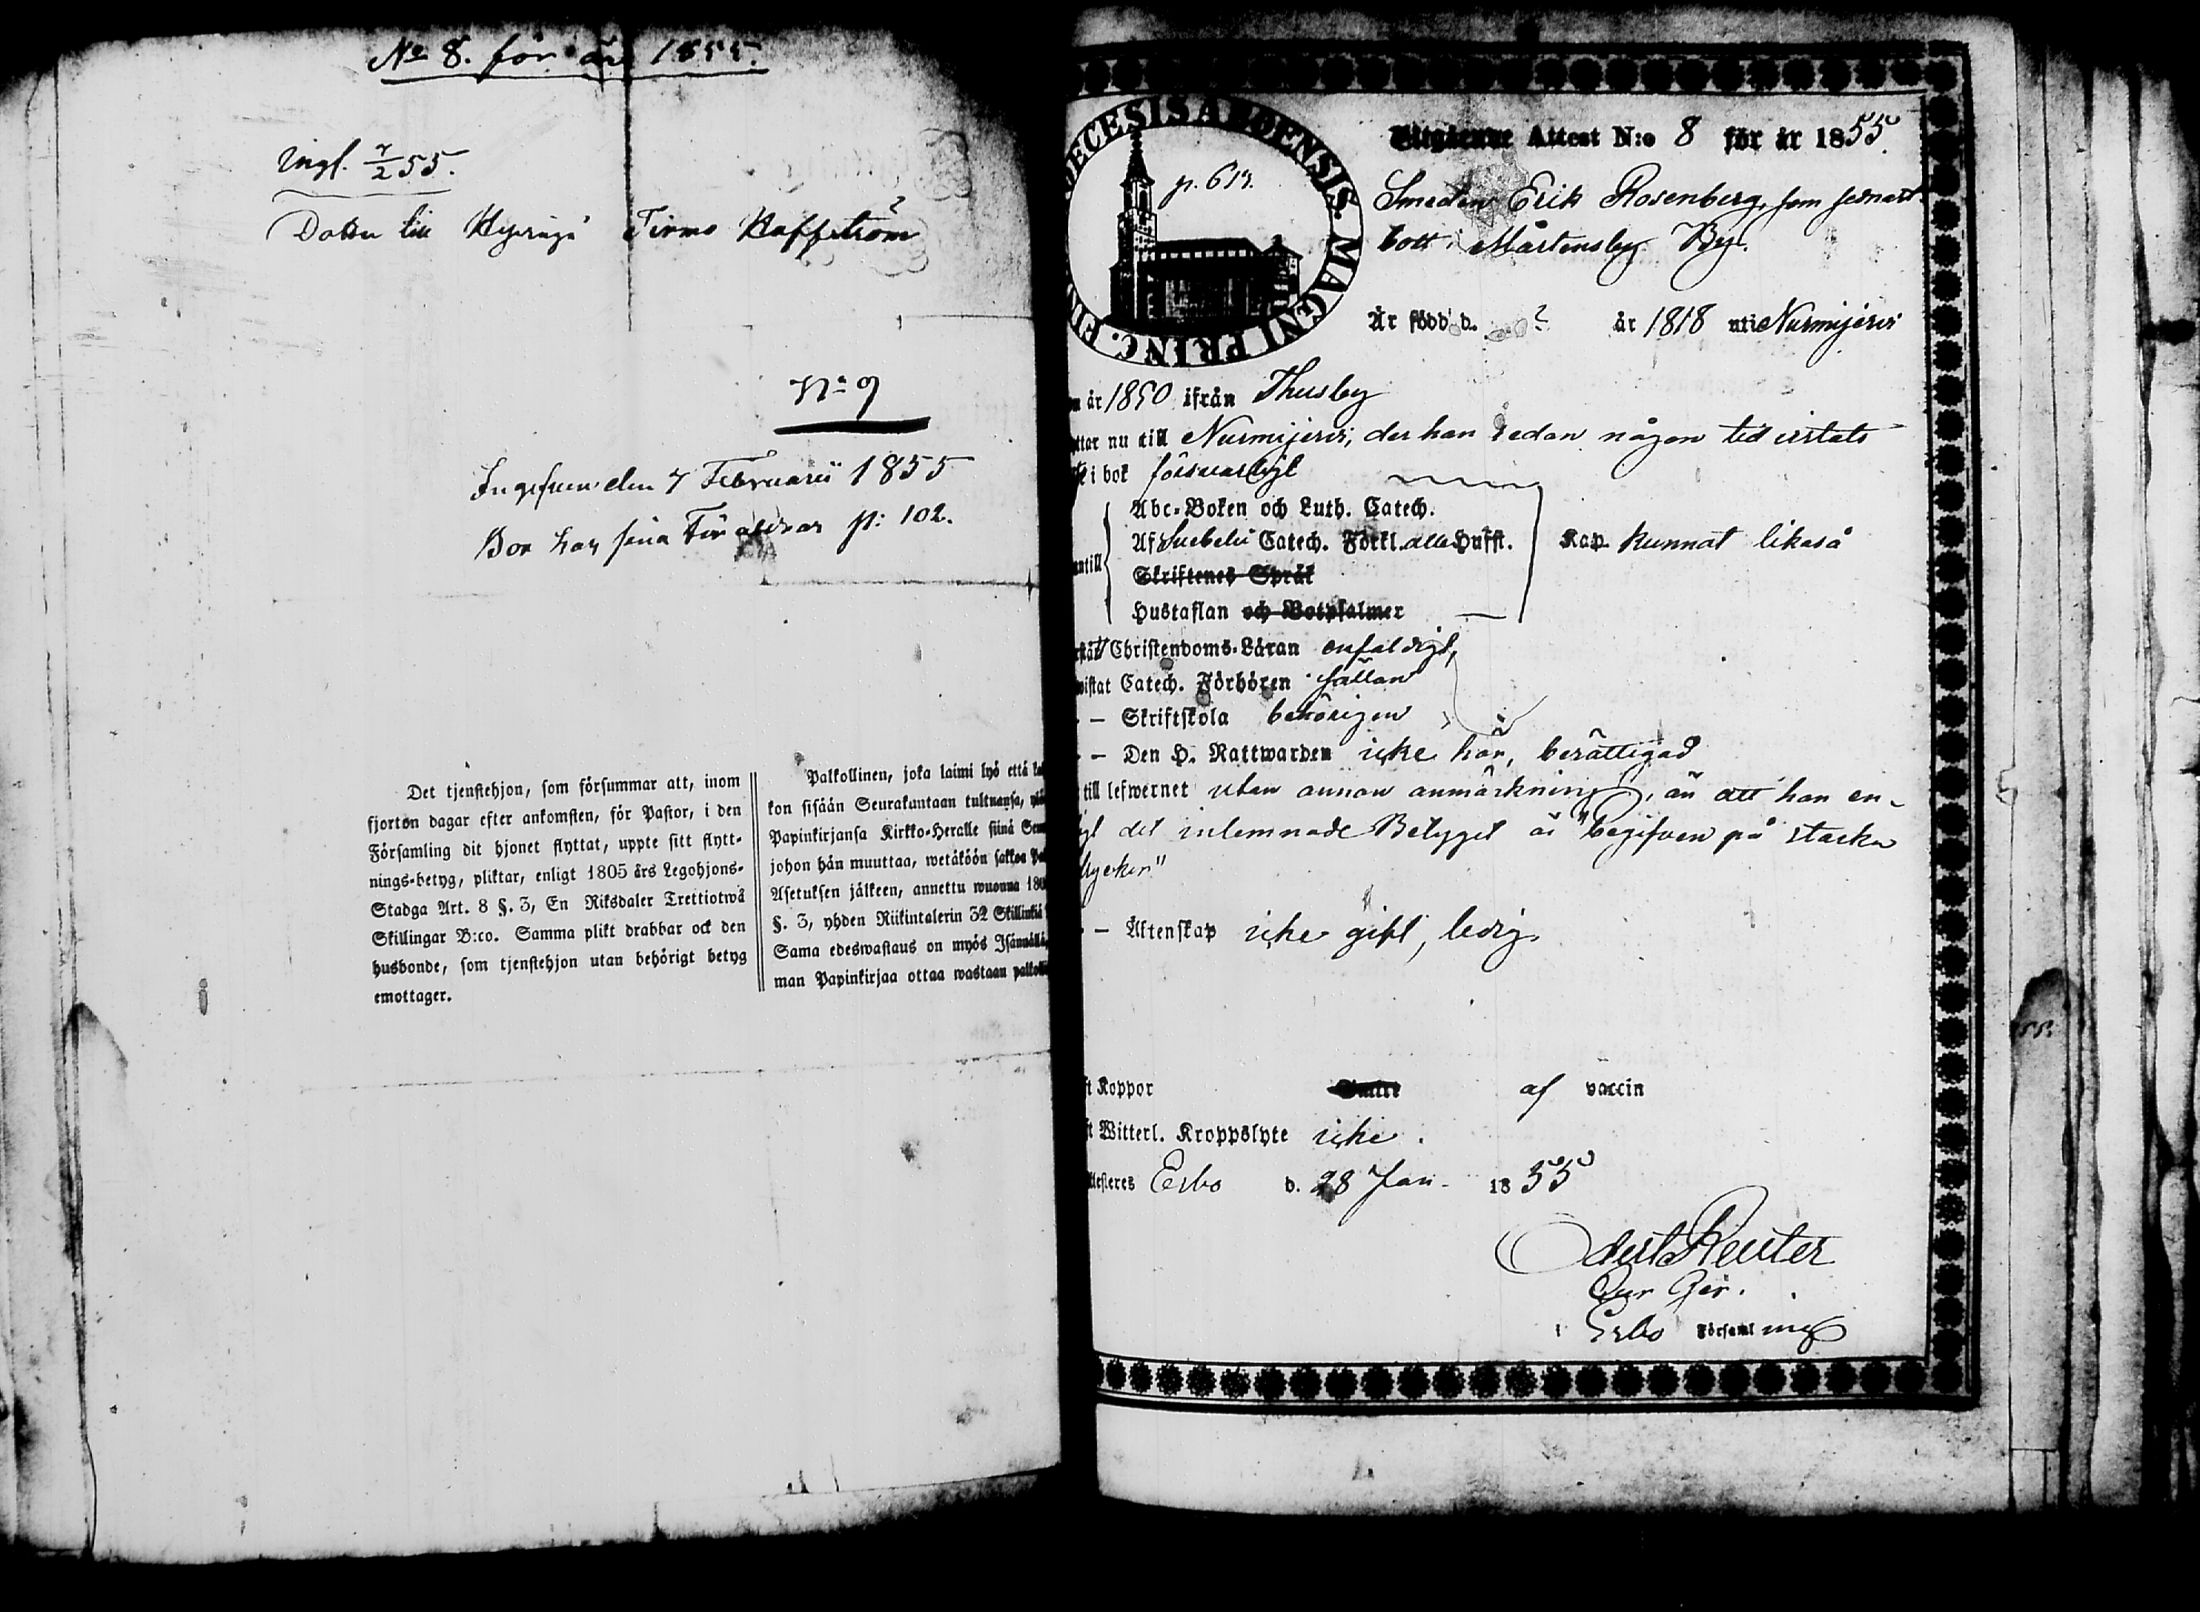 No 8. för år 1855.
Ingl. 7/2 55.
Dotter till Hyringe Firmo Kaffström
No 9
Ingifven den 7 Februarii 1855
Bor hos sina Föräldrar p: 102.
Det tjenstehjon, som försummar att, inom
fjorton dagar efter ankomsten, för Pastor, i den
Församling dit hjonet flyttat, uppte sitt flytt-
nings-betyg, pliktar, enligt 1805 års Legohjons-
Stadga Art. 8 §. 3, En Riksdaler Trettiotwå
Skillingar B:co. Samma plikt drabbar ock den
husbonde, som tjenstehjon utan behörigt betyg
emottager.
Palkollinen, joka laimi lyö että
kon sisään Seurakuntaan tultuansa,
Papinkirjansa Kirkko-Heralle siinä
johon hän muuttaa, wetäköön sakkoa
Asetuksen jälkeen, annettu wuonna 180
§. 3, yhden Riikintalerin 32 Skillinkiä
Sama edeswastaus on myös Isännällä,
man Papinkirjaa ottaa wastaan
DECESIS ABOENSIS. MAGNI PRINC. FIN
p. 613.
Utgående Attest N:o 8 för år 1855.
Smeden Erik Rosenberg, som senast
bott i Mårtensby By.
Är född d. ? år 1818 uti Nurmijervi
år 1850 ifrån Thusby
ttar nu till Nurmijervi, der han redan någon tid vistats
i bok försvarligt
Abc-Boken och Luth. Catech.
Af Svebelii Catech. Förkl. alla Hufst. Kap. kunnat likaså
antill
Skriftenes Språk
Hustaflan och Botpsalmer
rstår Christendoms-Läran enfaldigt,
wistat Catech. Förhören sällan
– Skriftskola behörigen
– Den H. Nattwarden icke här, berättigad
till lefwernet utan annan anmärkning, än att han en-
ligt det inlemnade Betyget är "begifven på starka
drycker"
– Äktenskap icke gift, ledig.
ft Koppor af vaccin
ft Witterl. Kroppslyte icke.
Attesteres Esbo d. 28 Jan. 1855
Odert Reuter
i Esbo Församling